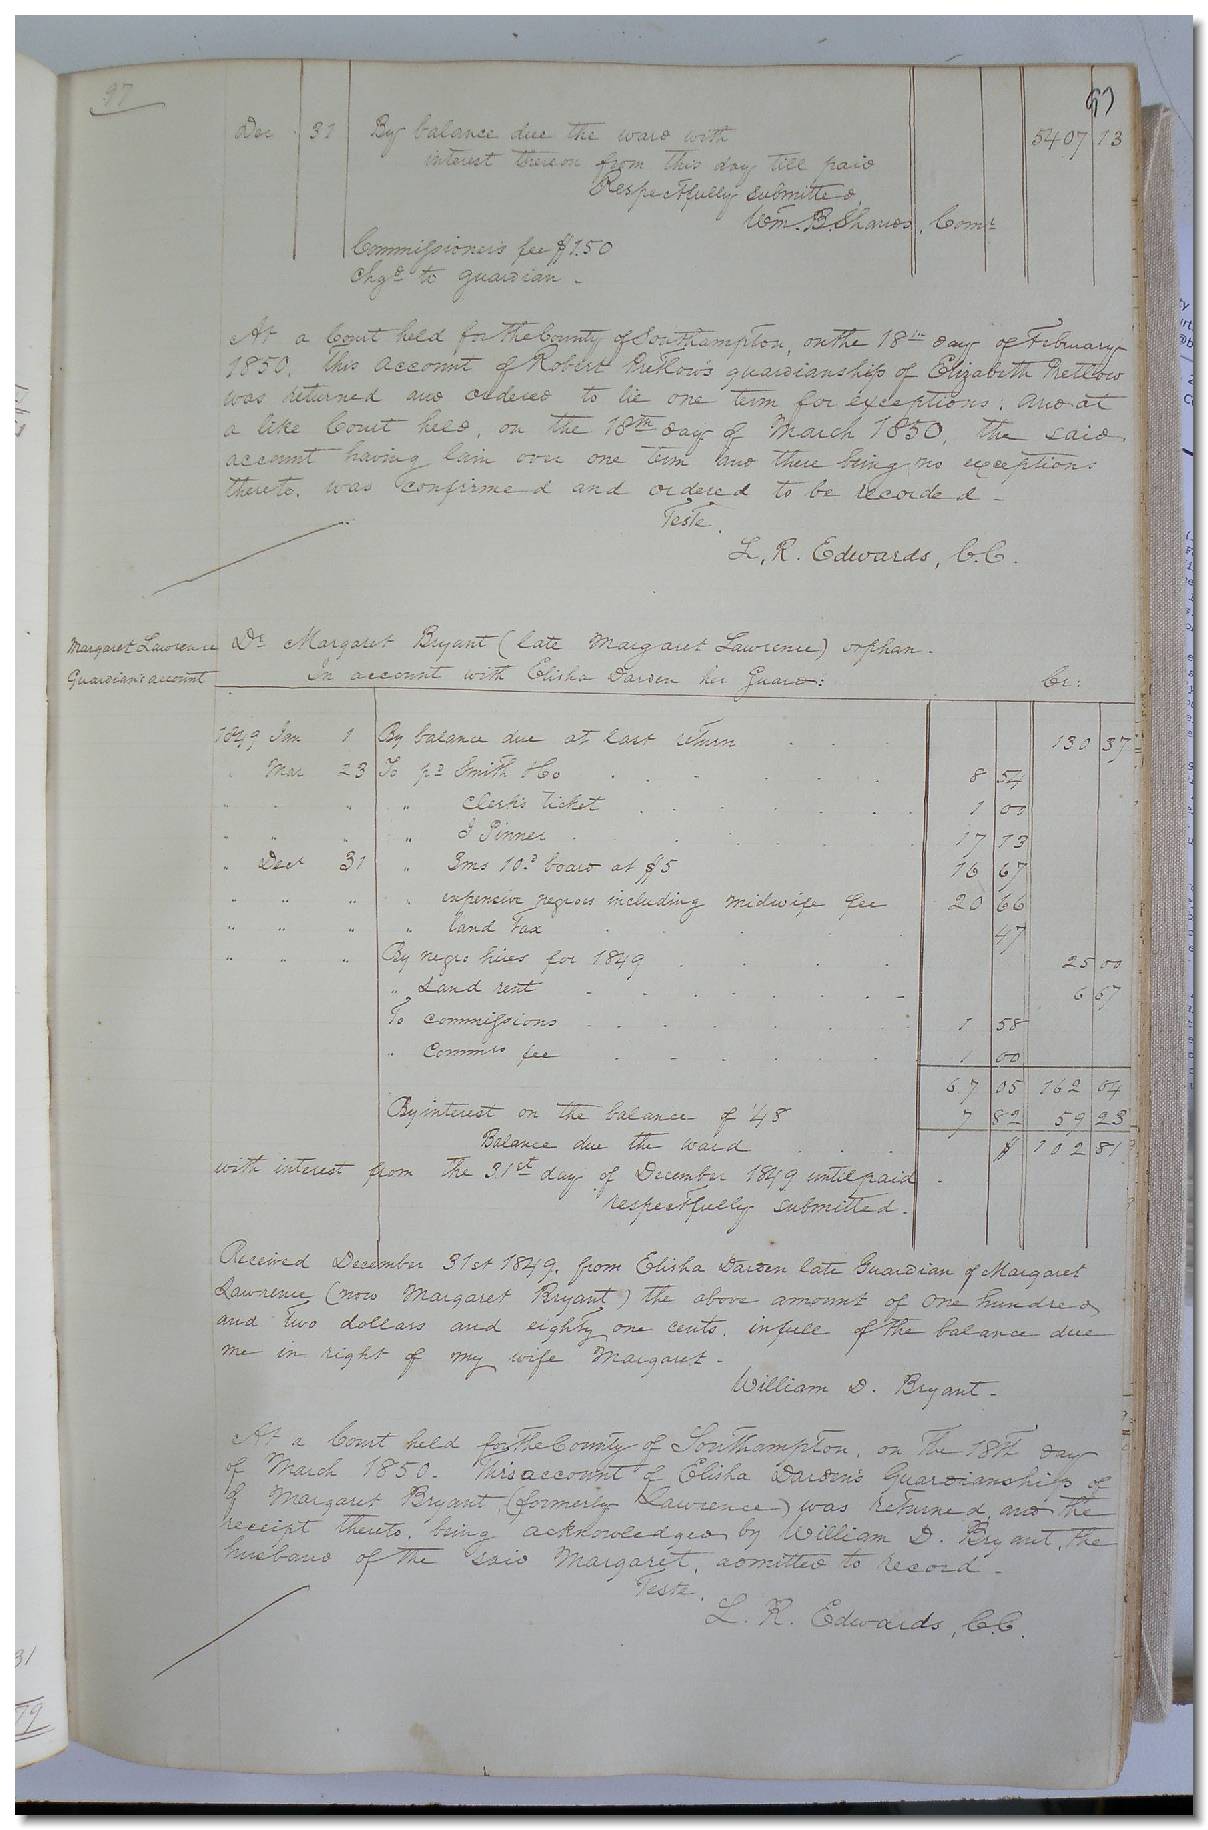 97
97
Dec 31 By balance due the ward with 5407 13
interest thereon from this day till paid
Respectfully submitted
Wm. B. Shands, Comr
Commissioner's fee $1.50
chgd to guardian.
At a Court held for the County of Southampton, on the 18th day of February
1850. This account of Robert Pretlow's guardianship of Elizabeth Pretlow
was returned and ordered to lie one term for exceptions: and at
a like Court held, on the 18th day of March 1850, the said
account having lain over one term and there being no exceptions
thereto, was confirmed and ordered to be recorded.
Teste.
L. R. Edwards, C.C.
Margaret Lawrence
Guardian's account
Dr Margaret Bryant (late Margaret Lawrence) orphan.
In account with Elisha Darden her Guard: Cr:
1849 Jan 1 By balance due at last return 130 37
" Mar 23 To pd Smith & Co 8 54
" " " " Clerk's ticket 1 00
" " " " J Pinner 17 13
" Dect 31 " 3ms 10d board at $5 16 67
" " " " expensive negroes including midwife fee 20 66
" " " " land tax 47
" " " By negro hires for 1849 25 00
" Land rent 6 67
To commissions 1 58
" Commrs fee 1 00
67 05 162 04
By interest on the balance of '48 7 82 59 23
Balance due the ward $ 102 81
with interest from the 31st day of December 1849 until paid
respectfully submitted.
Received December 31st 1849. from Elisha Darden late Guardian of Margaret
Lawrence (now Margaret Bryant) the above amount of One hundred
and Two dollars and eighty one cents. in full of the balance due
me in right of my wife Margaret.
William D. Bryant.
At a Court held for the County of Southampton, on the 18th day
of March 1850. This account of Elisha Darden's Guardianship of
of Margaret Bryant (formerly Lawrence) was returned, and the
receipt thereto, being acknowledged by William D. Bryant, the
husband of the said Margaret, admitted to record.
Teste.
L. R. Edwards, C.C.